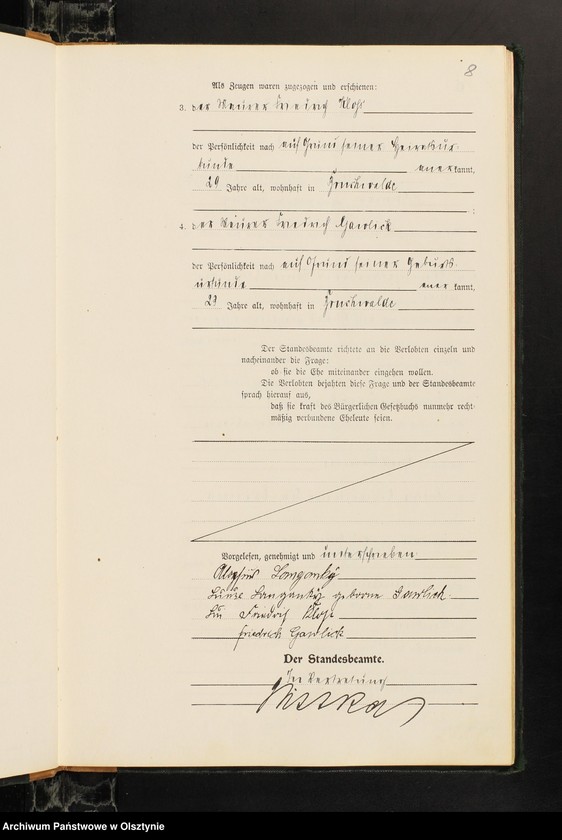 8
Als Zeugen waren zugezogen und erschienen:
3. der Maurer Friedrich Klohs
der Persönlichkeit nach auf Grund seiner Heiratsur-
kunde anerkannt,
29 Jahre alt, wohnhaft in
;
4. der Maurer Friedrich Gawlick
der Persönlichkeit nach auf Grund seiner Geburts-
urkunde anerkannt,
Jahre alt, wohnhaft in
Der Standesbeamte richtete an die Verlobten einzeln und
nacheinander die Frage:
ob sie die Ehe miteinander eingehen wollen.
Die Verlobten bejahten diese Frage und der Standesbeamte
sprach hierauf aus,
daß sie kraft des Bürgerlichen Gesetzbuchs nunmehr recht-
mäßig verbundene Eheleute seien.
Vorgelesen, genehmigt und unterschrieben
Aloysius Langanky
Langanky geborne Gawlick
Friedrich
Friedrich Gawlick
Der Standesbeamte.
In Vertretung
Archiwum Państwowe w Olsztynie